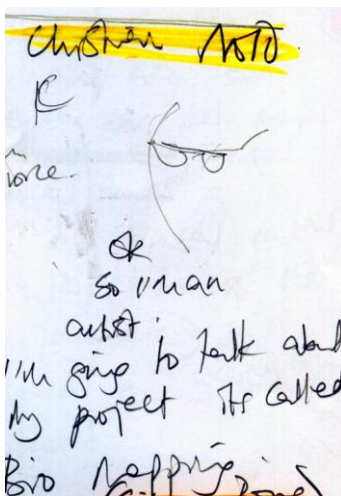 Christian Nold
more.
ok
so I'm an
artist.
I'm going to talk about
my project its called
Bio Mapping